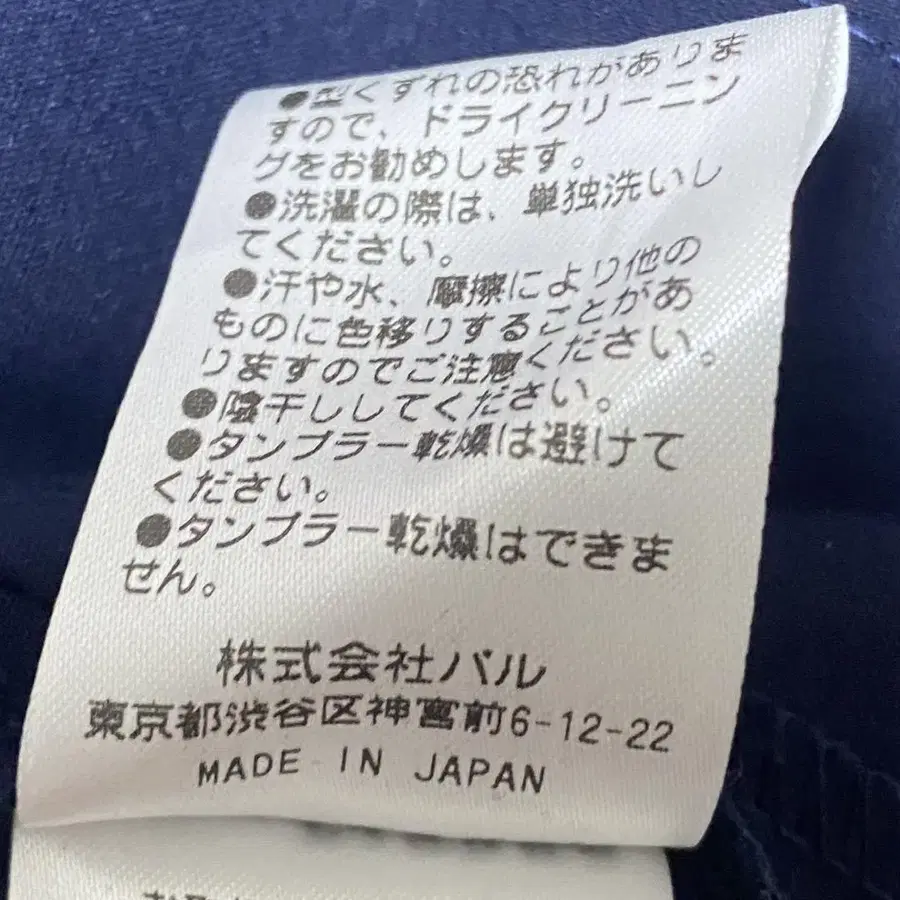 ●型くずれの恐れがありま
すので、ドライクリーニン
グをお勧めします。
●洗濯の際は、単独洗いし
てください。
●汗や水、摩擦により他の
ものに色移りすることがあ
りますのでご注意ください。
●陰干ししてください。
●タンブラー乾燥は避けて
ください。
●タンブラー乾燥はできま
せん。
株式会社バル
東京都渋谷区神宮前6-12-22
MADE IN JAPAN